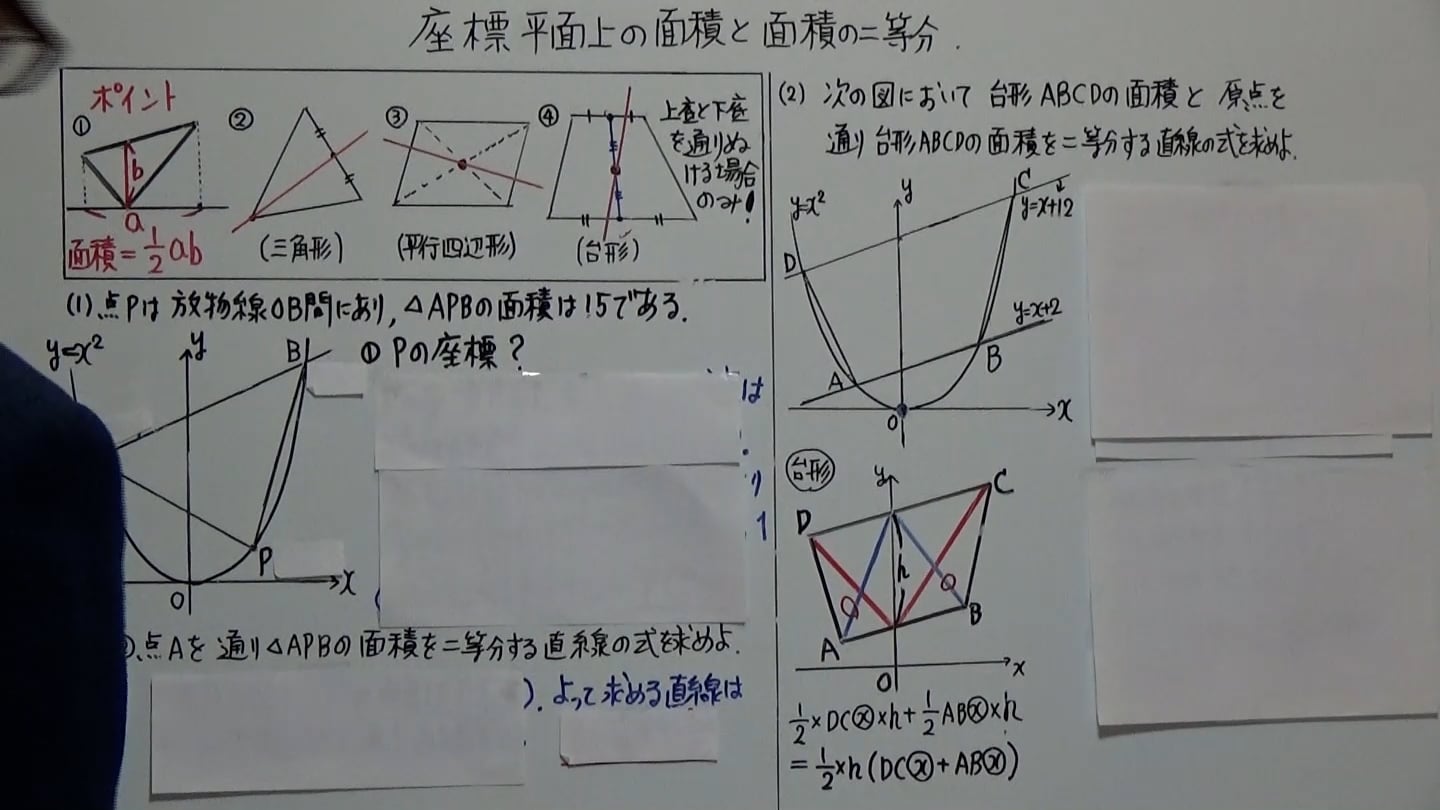 座標平面上の面積と面積の二等分.
ポイント
①
b
a
面積=1/2ab
②
(三角形)
③
(平行四辺形)
④
(台形)
上底と下底
を通りぬ
ける場合
のみ!
(1) 点Pは放物線OB間にあり, △APBの面積は15である.
y=x²
y
B
P
x
O
① Pの座標?
は
.
り
1
点Aを通り△APBの面積を二等分する直線の式を求めよ.
). よって求める直線は
(2) 次の図において 台形ABCDの面積と 原点を
通り台形ABCDの面積を二等分する直線の式を求めよ.
y=x²
y
C
y=x+12
D
y=x+2
A
B
O
x
台形
y
C
D
h
A
B
O
x
1/2×DCⓧ×h+1/2ABⓧ×h
=1/2×h(DCⓧ+ABⓧ)